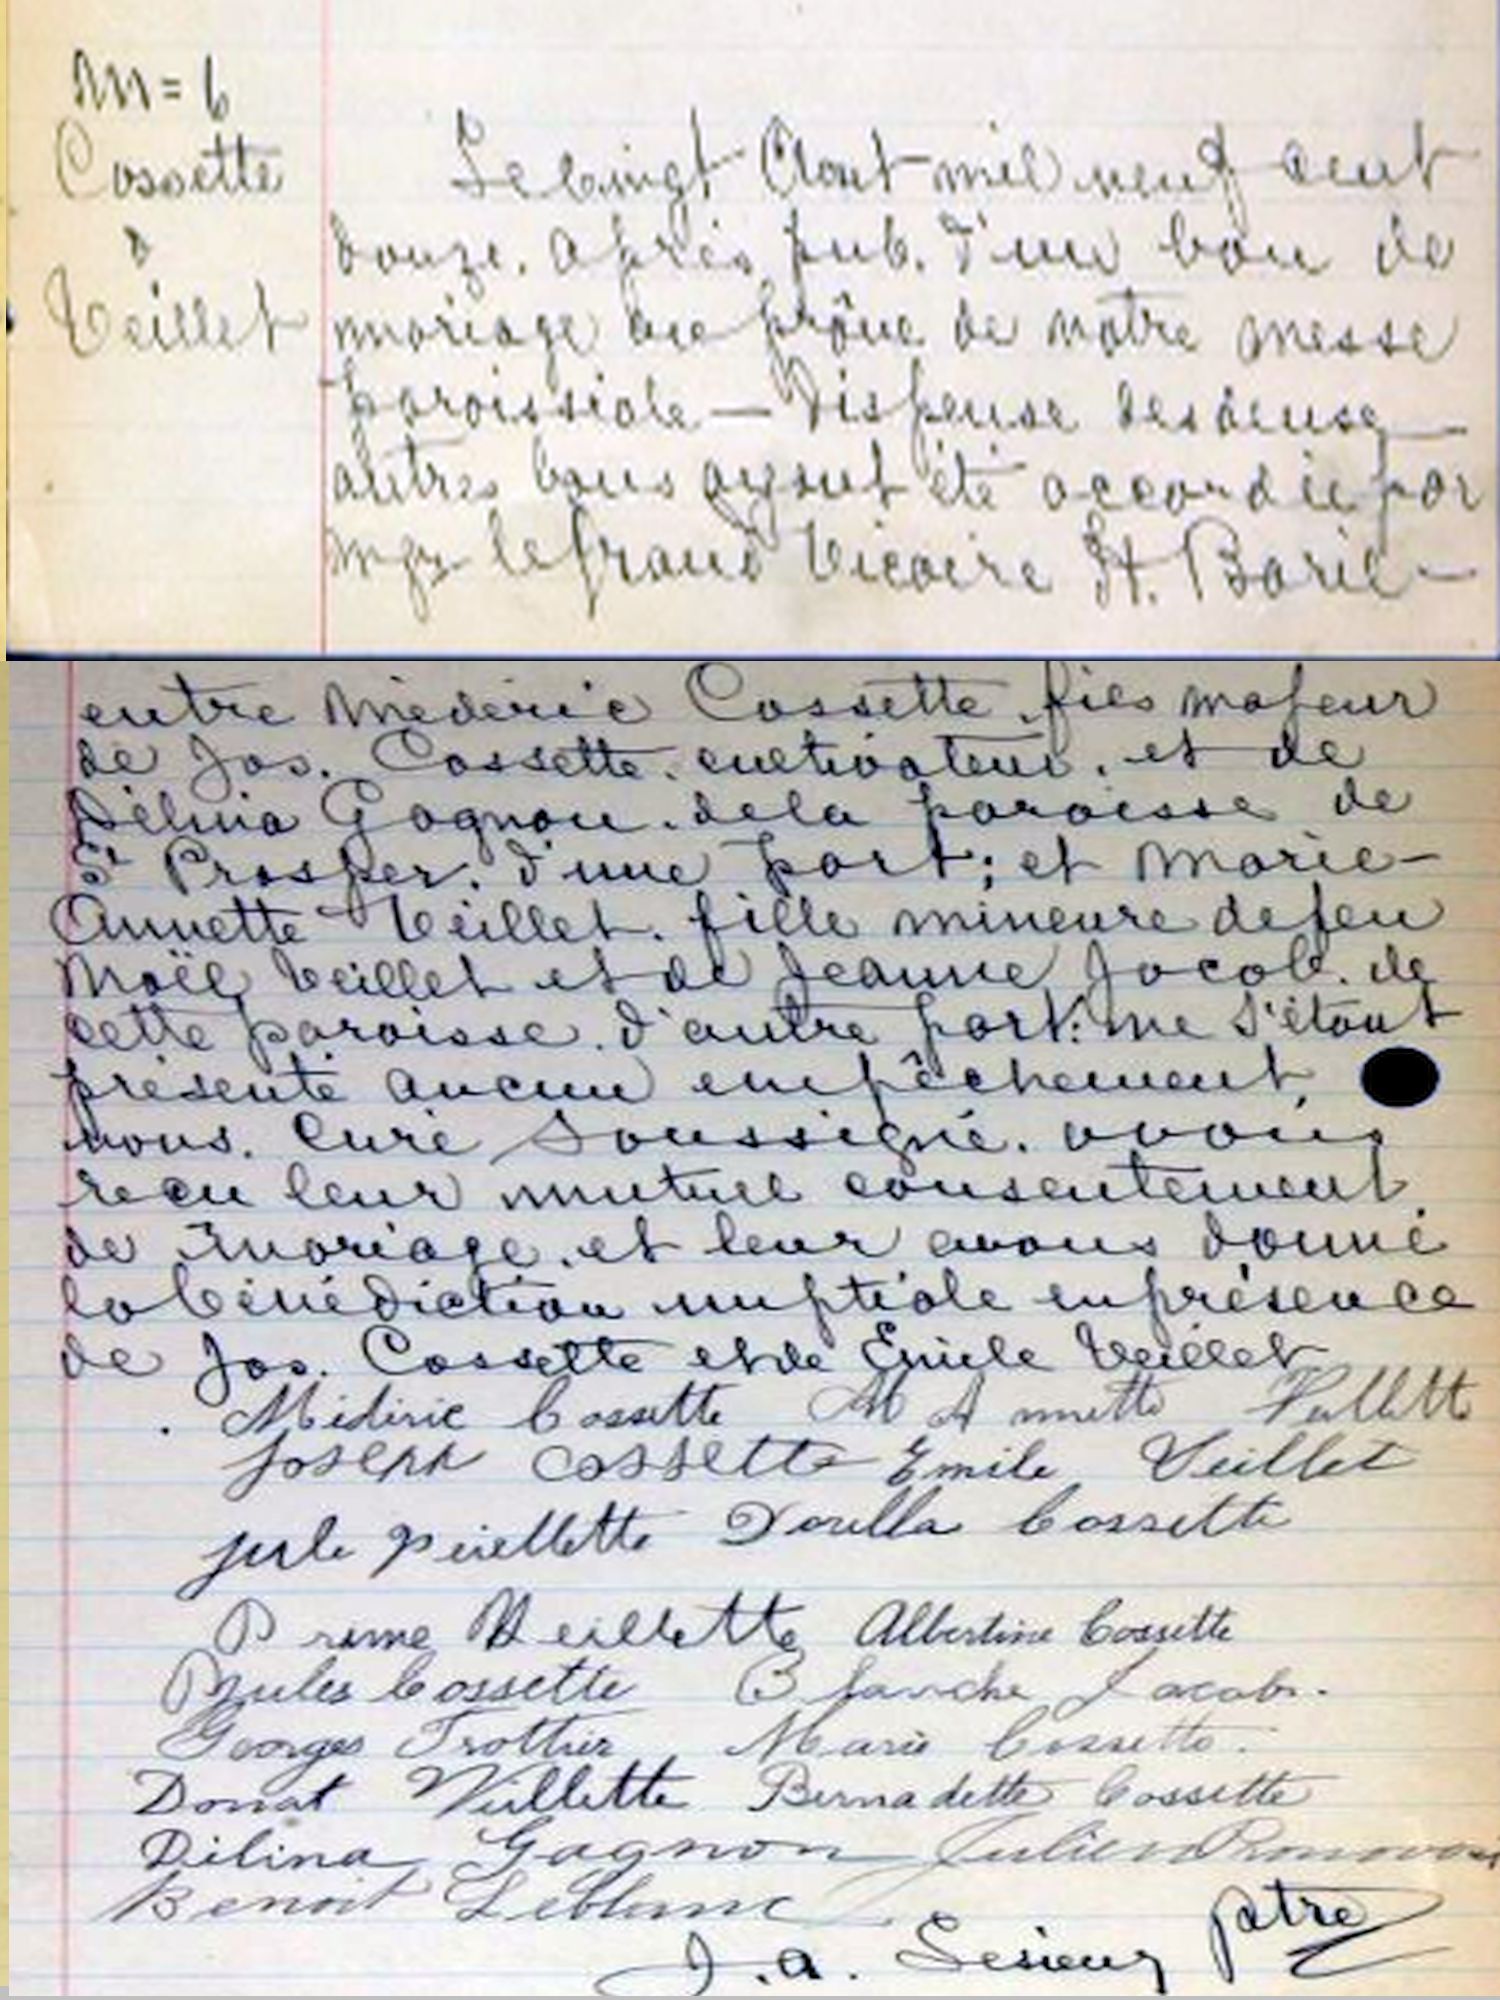 M = 6
Cossette
&
Veillet
Le vingt Aout mil neuf cent
douze. après pub. d'un ban de
mariage au prône de notre messe
paroissiale — Dispense des deux —
autres bans ayant été accordée par
Mgr le grand Vicaire H. Baril —
entre Mèdéric Cossette, fils majeur
de Jos. Cossette. cultivateur. et de
Délina Gagnon. de la paroisse de
St Prosper. d'une part; et Marie-
Annette Veillet. fille mineure de feu
Noël Veillet et de Jeanne Jacob. de
cette paroisse. d'autre part: ne s'étant
présenté aucun empêchement,
nous. Curé Soussigné. avons
reçu leur mutuel consentement
de mariage. et leur avons donné
la bénédiction nuptiale en présence
de Jos. Cossette et de Émile Veillet
Médéric Cossette M A nnette Veillette
Joseph Cossette Emile Veillet
Dorilla Cossette
Prime Veillette Albertine Cossette
Jules Cossette Blanche Jacob.
Georges Trottier Marie Cossette.
Donat Veillette Bernadette Cossette
Délina Gagnon Julien
Benoit Leblanc
J. A. Lesieur ptre